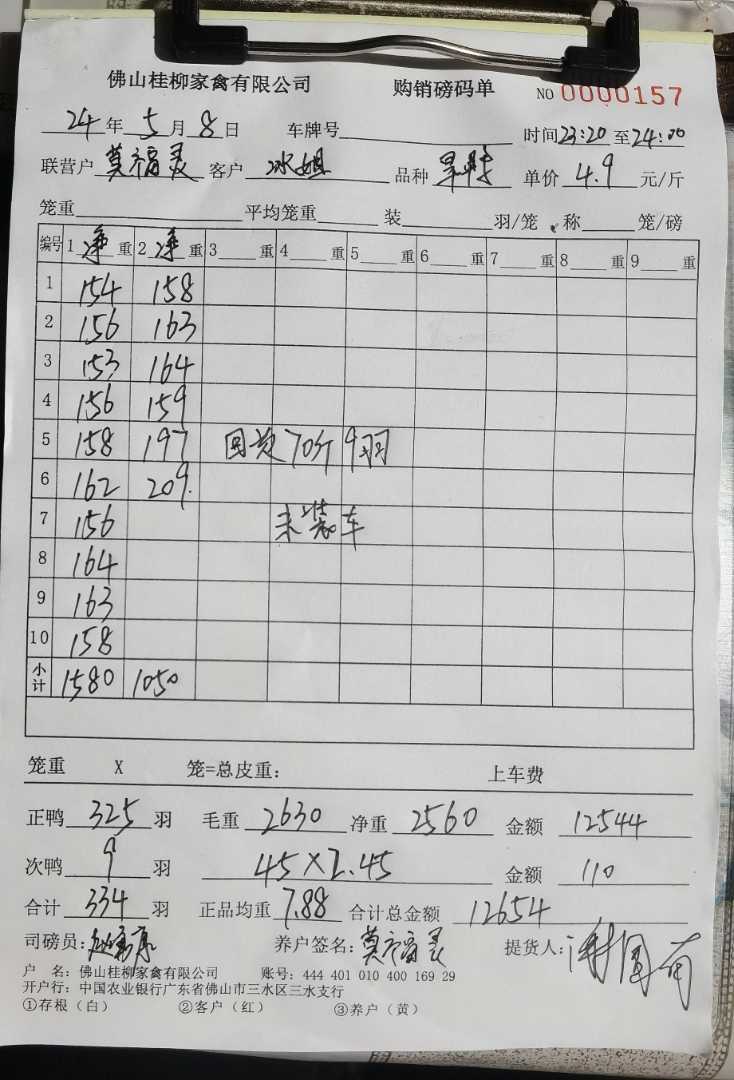 佛山桂柳家禽有限公司 购销磅码单 NO 0000157
24年5月8日 车牌号 时间23:20至24:00
联营户莫福灵 客户冰姐 品种 单价4.9元/斤
笼重 平均笼重 装 羽/笼 称 笼/磅
编号 1净重 2净重 3 重 4 重 5 重 6 重 7 重 8 重 9 重
1 154 158
2 156 163
3 153 164
4 156 159
5 158 197 70斤9羽
6 162 209
7 156 未装车
8 164
9 163
10 158
小计 1580 1050
笼重 X 笼=总皮重: 上车费
正鸭325羽 毛重2630 净重2560 金额12544
次鸭9羽 45×2.45 金额110
合计334羽 正品均重7.88 合计总金额12654
司磅员: 养户签名:莫福灵 提货人:
户 名: 佛山桂柳家禽有限公司 账号: 444 401 010 400 169 29
开户行: 中国农业银行广东省佛山市三水区三水支行
①存根(白) ②客户(红) ③养户(黄)